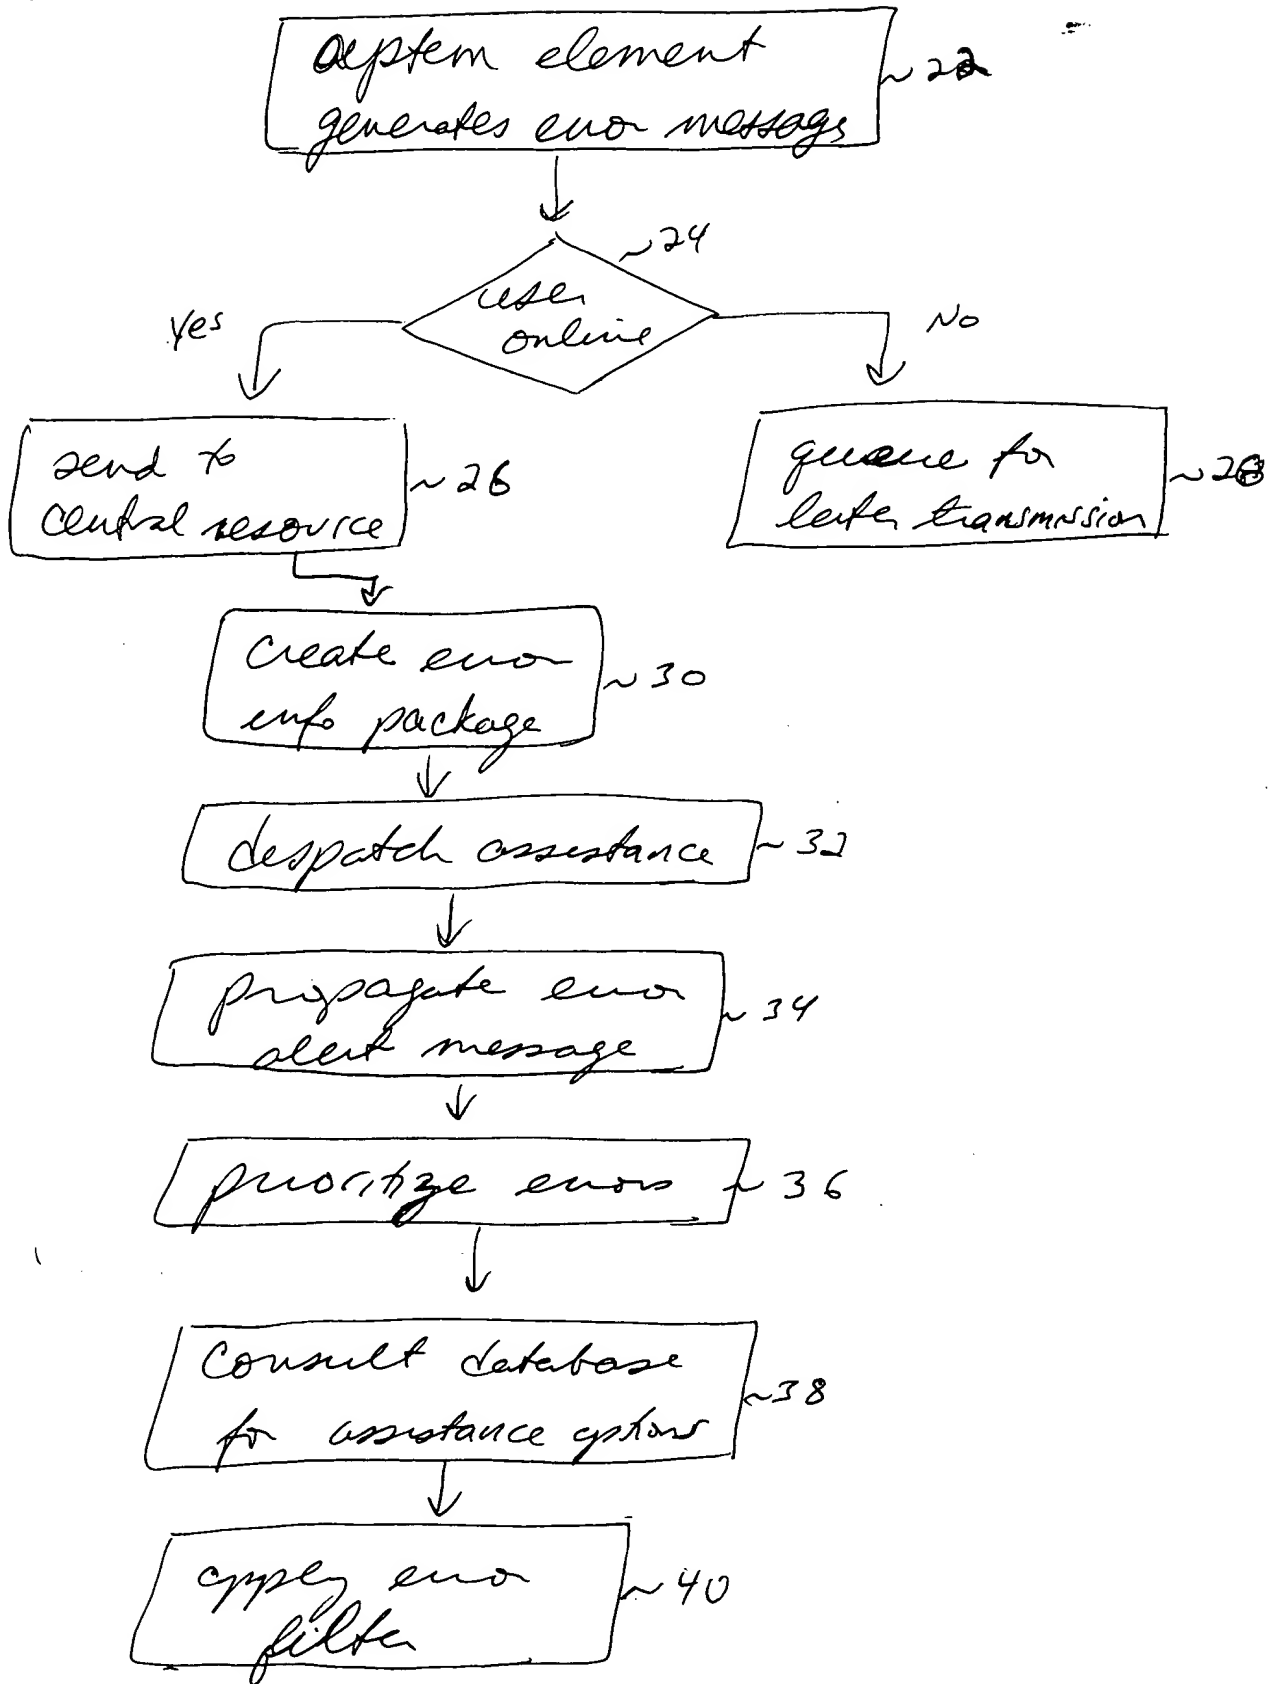 system element
generates error message
~22
~24
user
online
Yes
No
send to
central resource
~26
queue for
later transmission
~28
create error
info package
~30
dispatch assistance
~32
propagate error
alert message
~34
prioritize errors
~36
consult database
for assistance options
~38
apply error
filter
~40